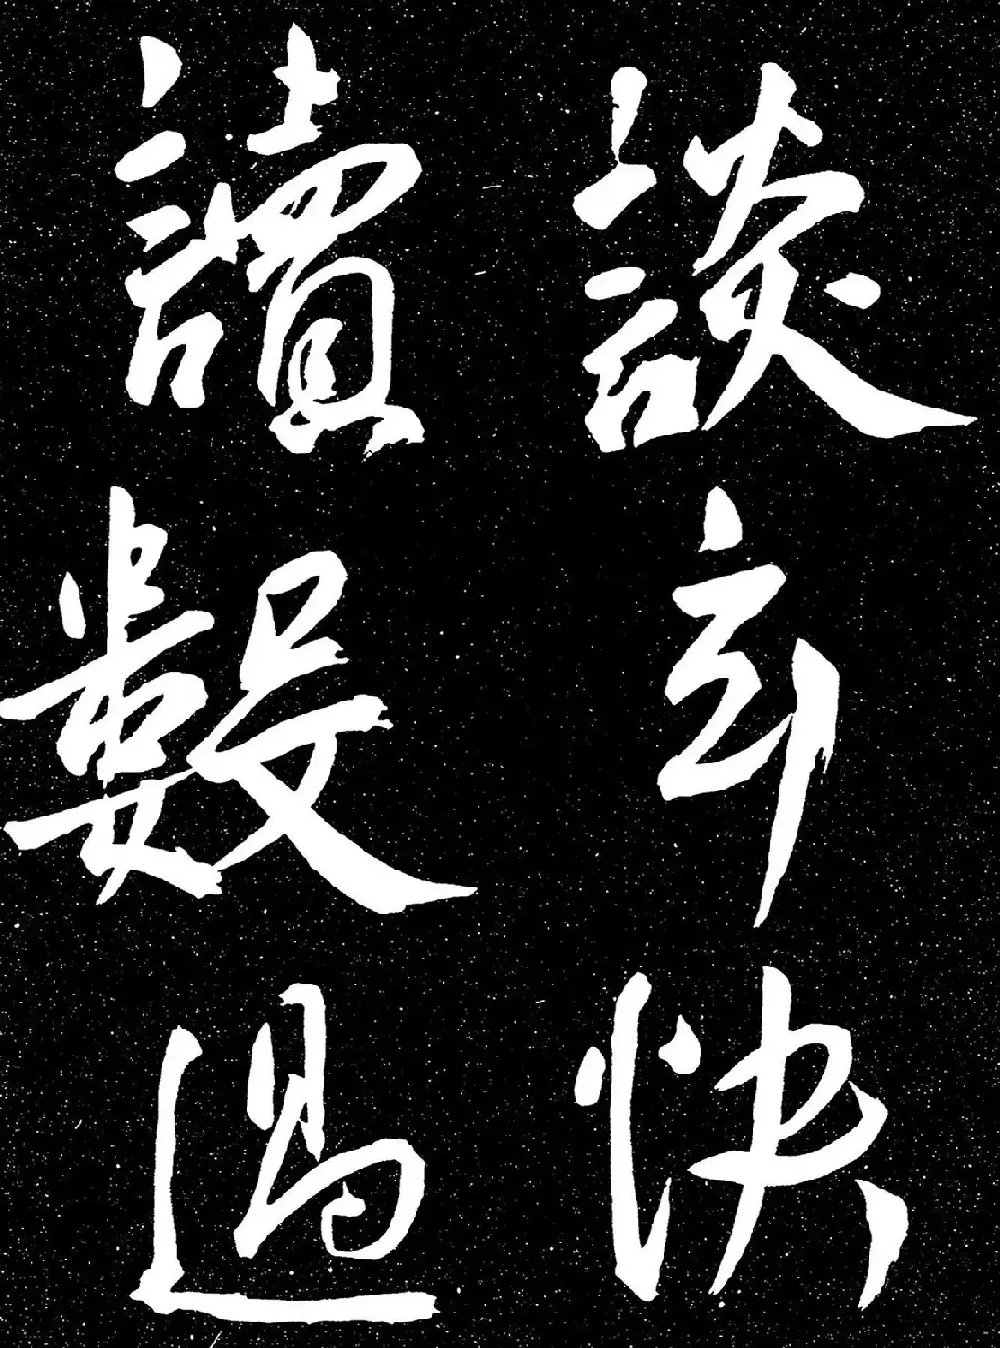 談玄快
讀數過